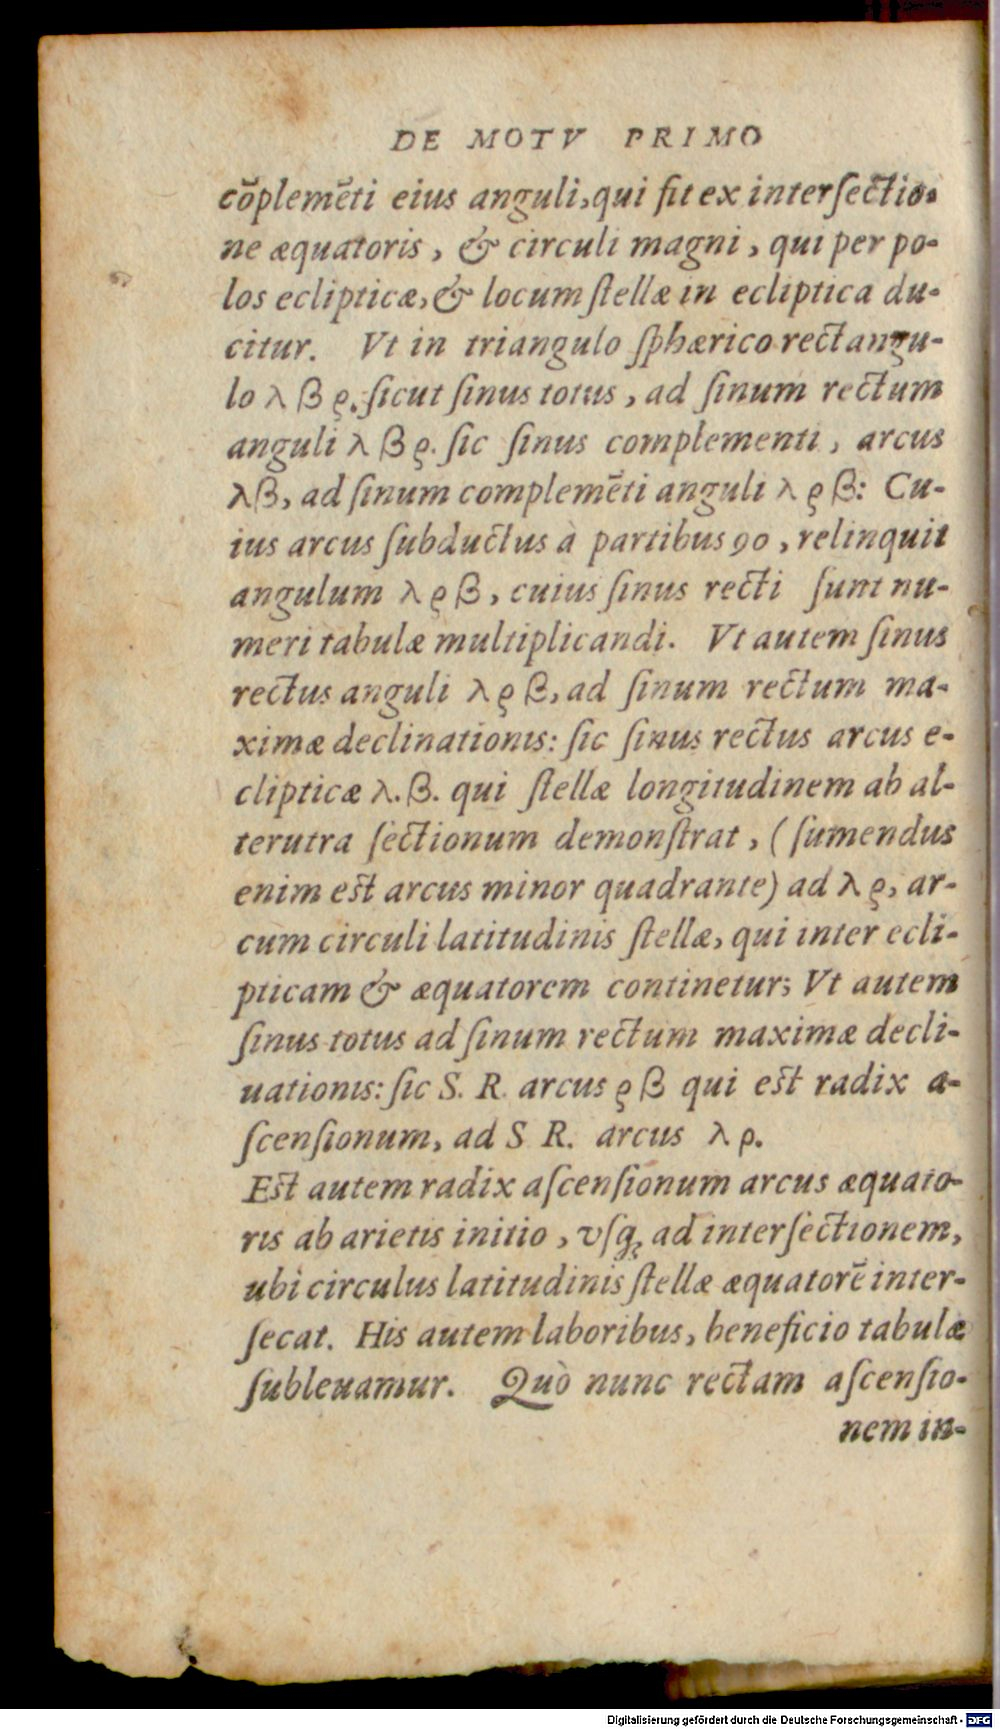 DE MOTV PRIMO
cõplemẽti eius anguli, qui fit ex interſectio-
ne æquatoris, & circuli magni, qui per po-
los eclipticæ, & locum ſtellæ in ecliptica du-
citur. Vt in triangulo ſphærico rectangu-
lo λ β ρ. ſicut ſinus totus, ad ſinum rectum
anguli λ β ρ. ſic ſinus complementi, arcus
λβ, ad ſinum complemẽti anguli λ ρ β: Cu-
ius arcus ſubductus à partibus 90, relinquit
angulum λ ρ β, cuius ſinus recti ſunt nu-
meri tabulæ multiplicandi. Vt autem ſinus
rectus anguli λ ρ β, ad ſinum rectum ma-
ximæ declinationis: ſic ſinus rectus arcus e-
clipticæ λ. β. qui ſtellæ longitudinem ab al-
terutra ſectionum demonſtrat, (ſumendus
enim eſt arcus minor quadrante) ad λ ρ, ar-
cum circuli latitudinis ſtellæ, qui inter ecli-
pticam & æquatorem continetur; Vt autem
ſinus totus ad ſinum rectum maximæ decli-
uationis: ſic S. R. arcus ρ β qui eſt radix a-
ſcenſionum, ad S R. arcus λ ρ.
Eſt autem radix aſcenſionum arcus æquato-
ris ab arietis initio, vſq; ad interſectionem,
ubi circulus latitudinis ſtellæ æquatorẽ inter-
ſecat. His autem laboribus, beneficio tabulæ
ſubleuamur. Quò nunc rectam aſcenſio-
nem in-
Digitalisierung gefördert durch die Deutsche Forschungsgemeinschaft - DFG